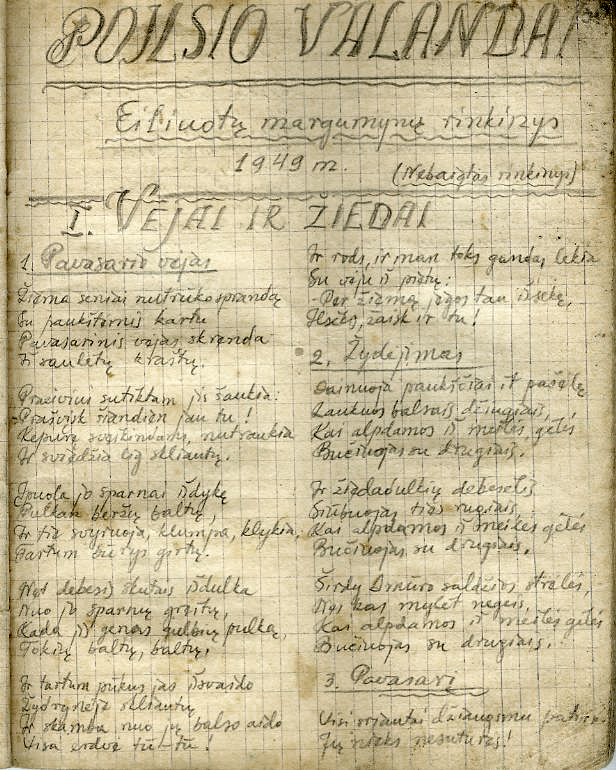 POILSIO VALANDAI
Eiliuotų margumynų rinkinys
1949 m.
(Nebaigtas rinkinys)
I. VĖJAI IR ŽIEDAI
1. Pavasario vėjas
Žiema seniai nutrūko sprandą
Su paukštėmis kartu
Pavasarinis vėjas skrenda
Iš saulėtų kraštų.
Praeiviui sutiktam jis šaukia:
- Prašvisk šiandien jau tu!
Kepurę sveikindams, nutraukia
Ir sviedžia lig skliautų.
Įpuola jo sparnai išdykę
Pulkan beržų baltų,
Ir tie svyruoja, klumpa, klykia,
Tartum būrys girtų.
Net debesis skutais išdulka
Nuo jo sparnų greitų,
Kada jis genas gulbių pulką,
Tokių baltų, baltų.
Ir tartum pūkus jas išvaido
Žydrynėje skliautų
Ir skamba nuo jų balso aido
Visa erdvė tū-tū!
Ir rods, ir man toks gandas lekia
Su vėju iš pietų:
- Per žiemą jėgos tau išseko,
Ilsėkis, žaisk ir tu!
2. Žydėjimas
Dainuoja paukščiai ir pašėlę
Laukuos balsais džiugiais,
Kai alpdamos iš meilės gėlės
Bučiuojas su drugiais.
Ir žiedadulkių debesėlis
Siūbuojas ties rugiais,
Kai alpdamos iš meilės gėlės
Bučiuojas su drugiais.
Širdy Amūro saldžios strėlės,
Nes kas mylėt negeis,
Kai alpdamos iš meilės gėlės
Bučiuojas su drugiais.
3. Pavasarį
Visi sriautai džiaugsmu
Jų nieks nesuturės!